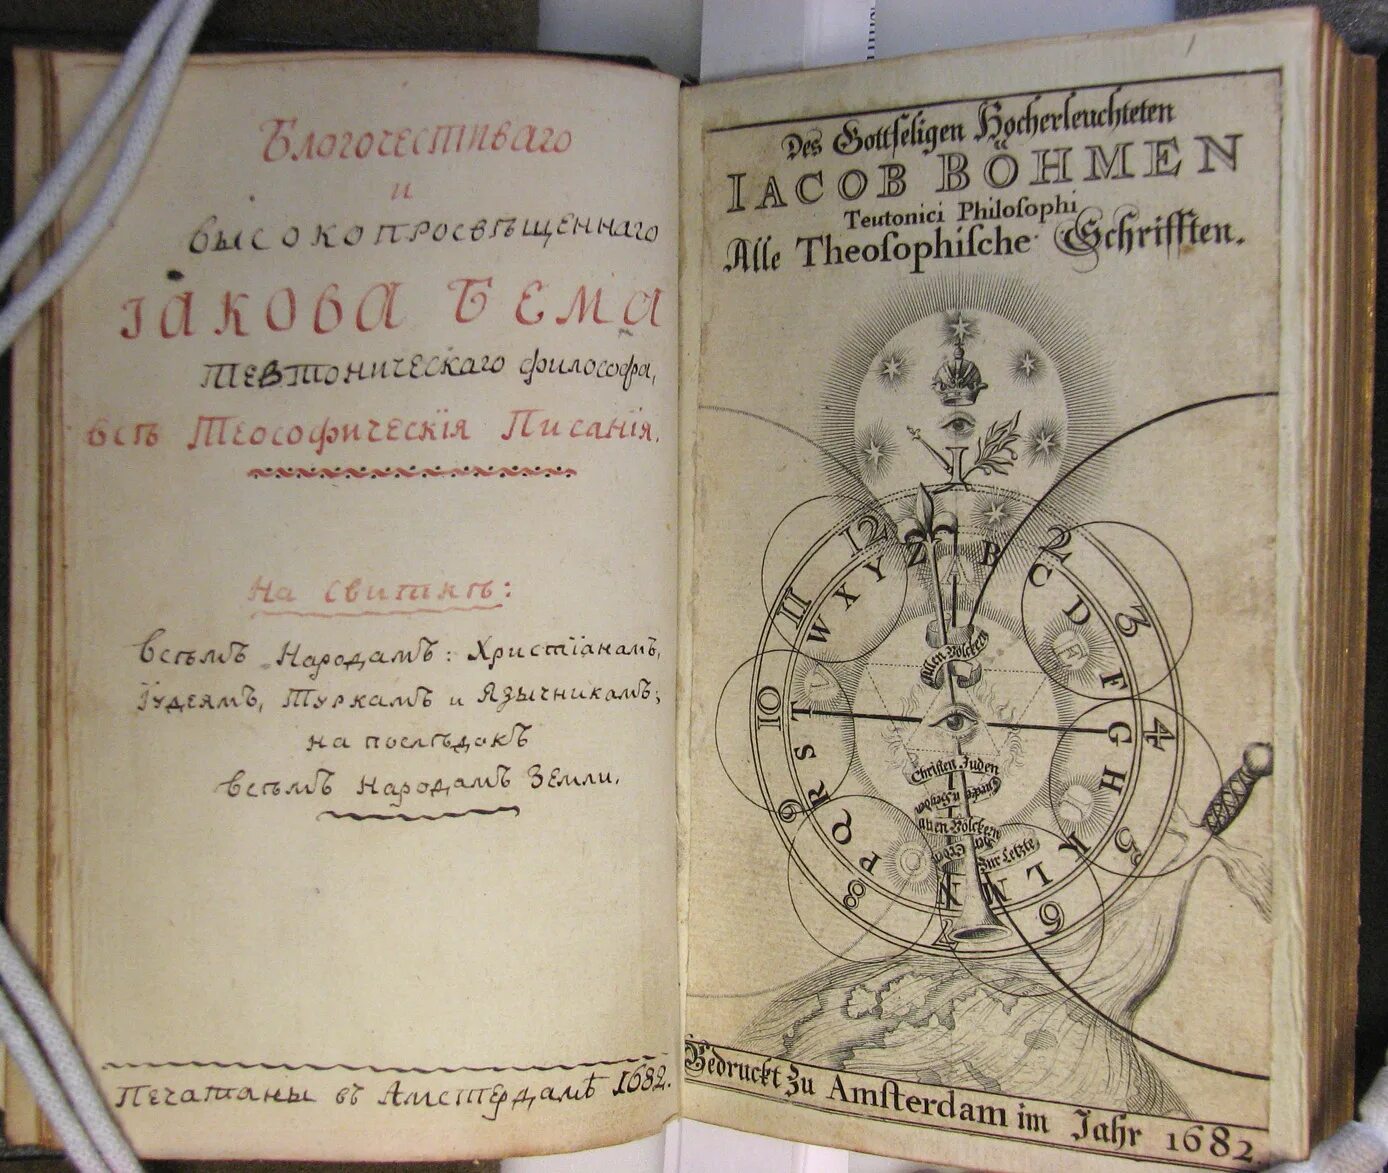 Благочестиваго
и
высокопросвѣщеннаго
Іакова Бема
Тевтоническаго философа,
всѣ Теософическія Писанія.
На свиткѣ:
всѣмъ Народамъ: Христіанамъ,
Іудеямъ, Туркамъ и Язычникамъ;
на послѣдокъ
всѣмъ Народамъ Земли.
Печатаны въ Амстердамѣ 1682.
Des Gottseligen Hocherleuchteten
IACOB BÖHMEN
Teutonici Philosophi
Alle Theosophische Schrifften.
I
12 2 3 4 5 6 7 8 9 10 11
A B C D E F G H I K L M N O P Q R S T V W X Y Z
Allen Völckern
Christen Juden
allen Völckern
Zur Letzte
Gedruckt Zu Amsterdam im Jahr 1682